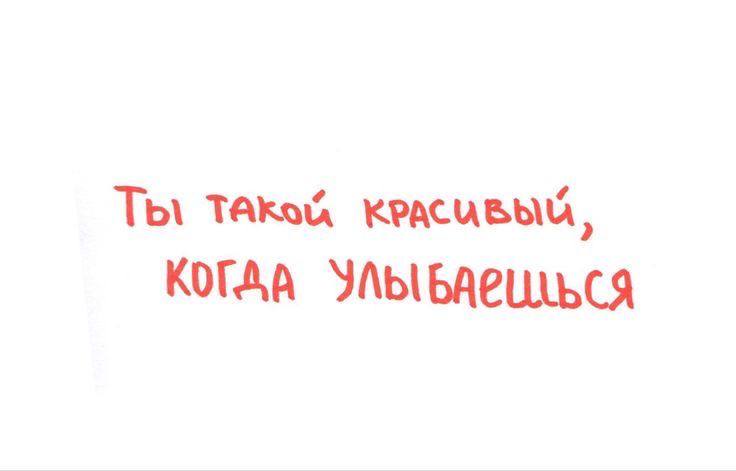 Ты такой красивый,
когда улыбаешься